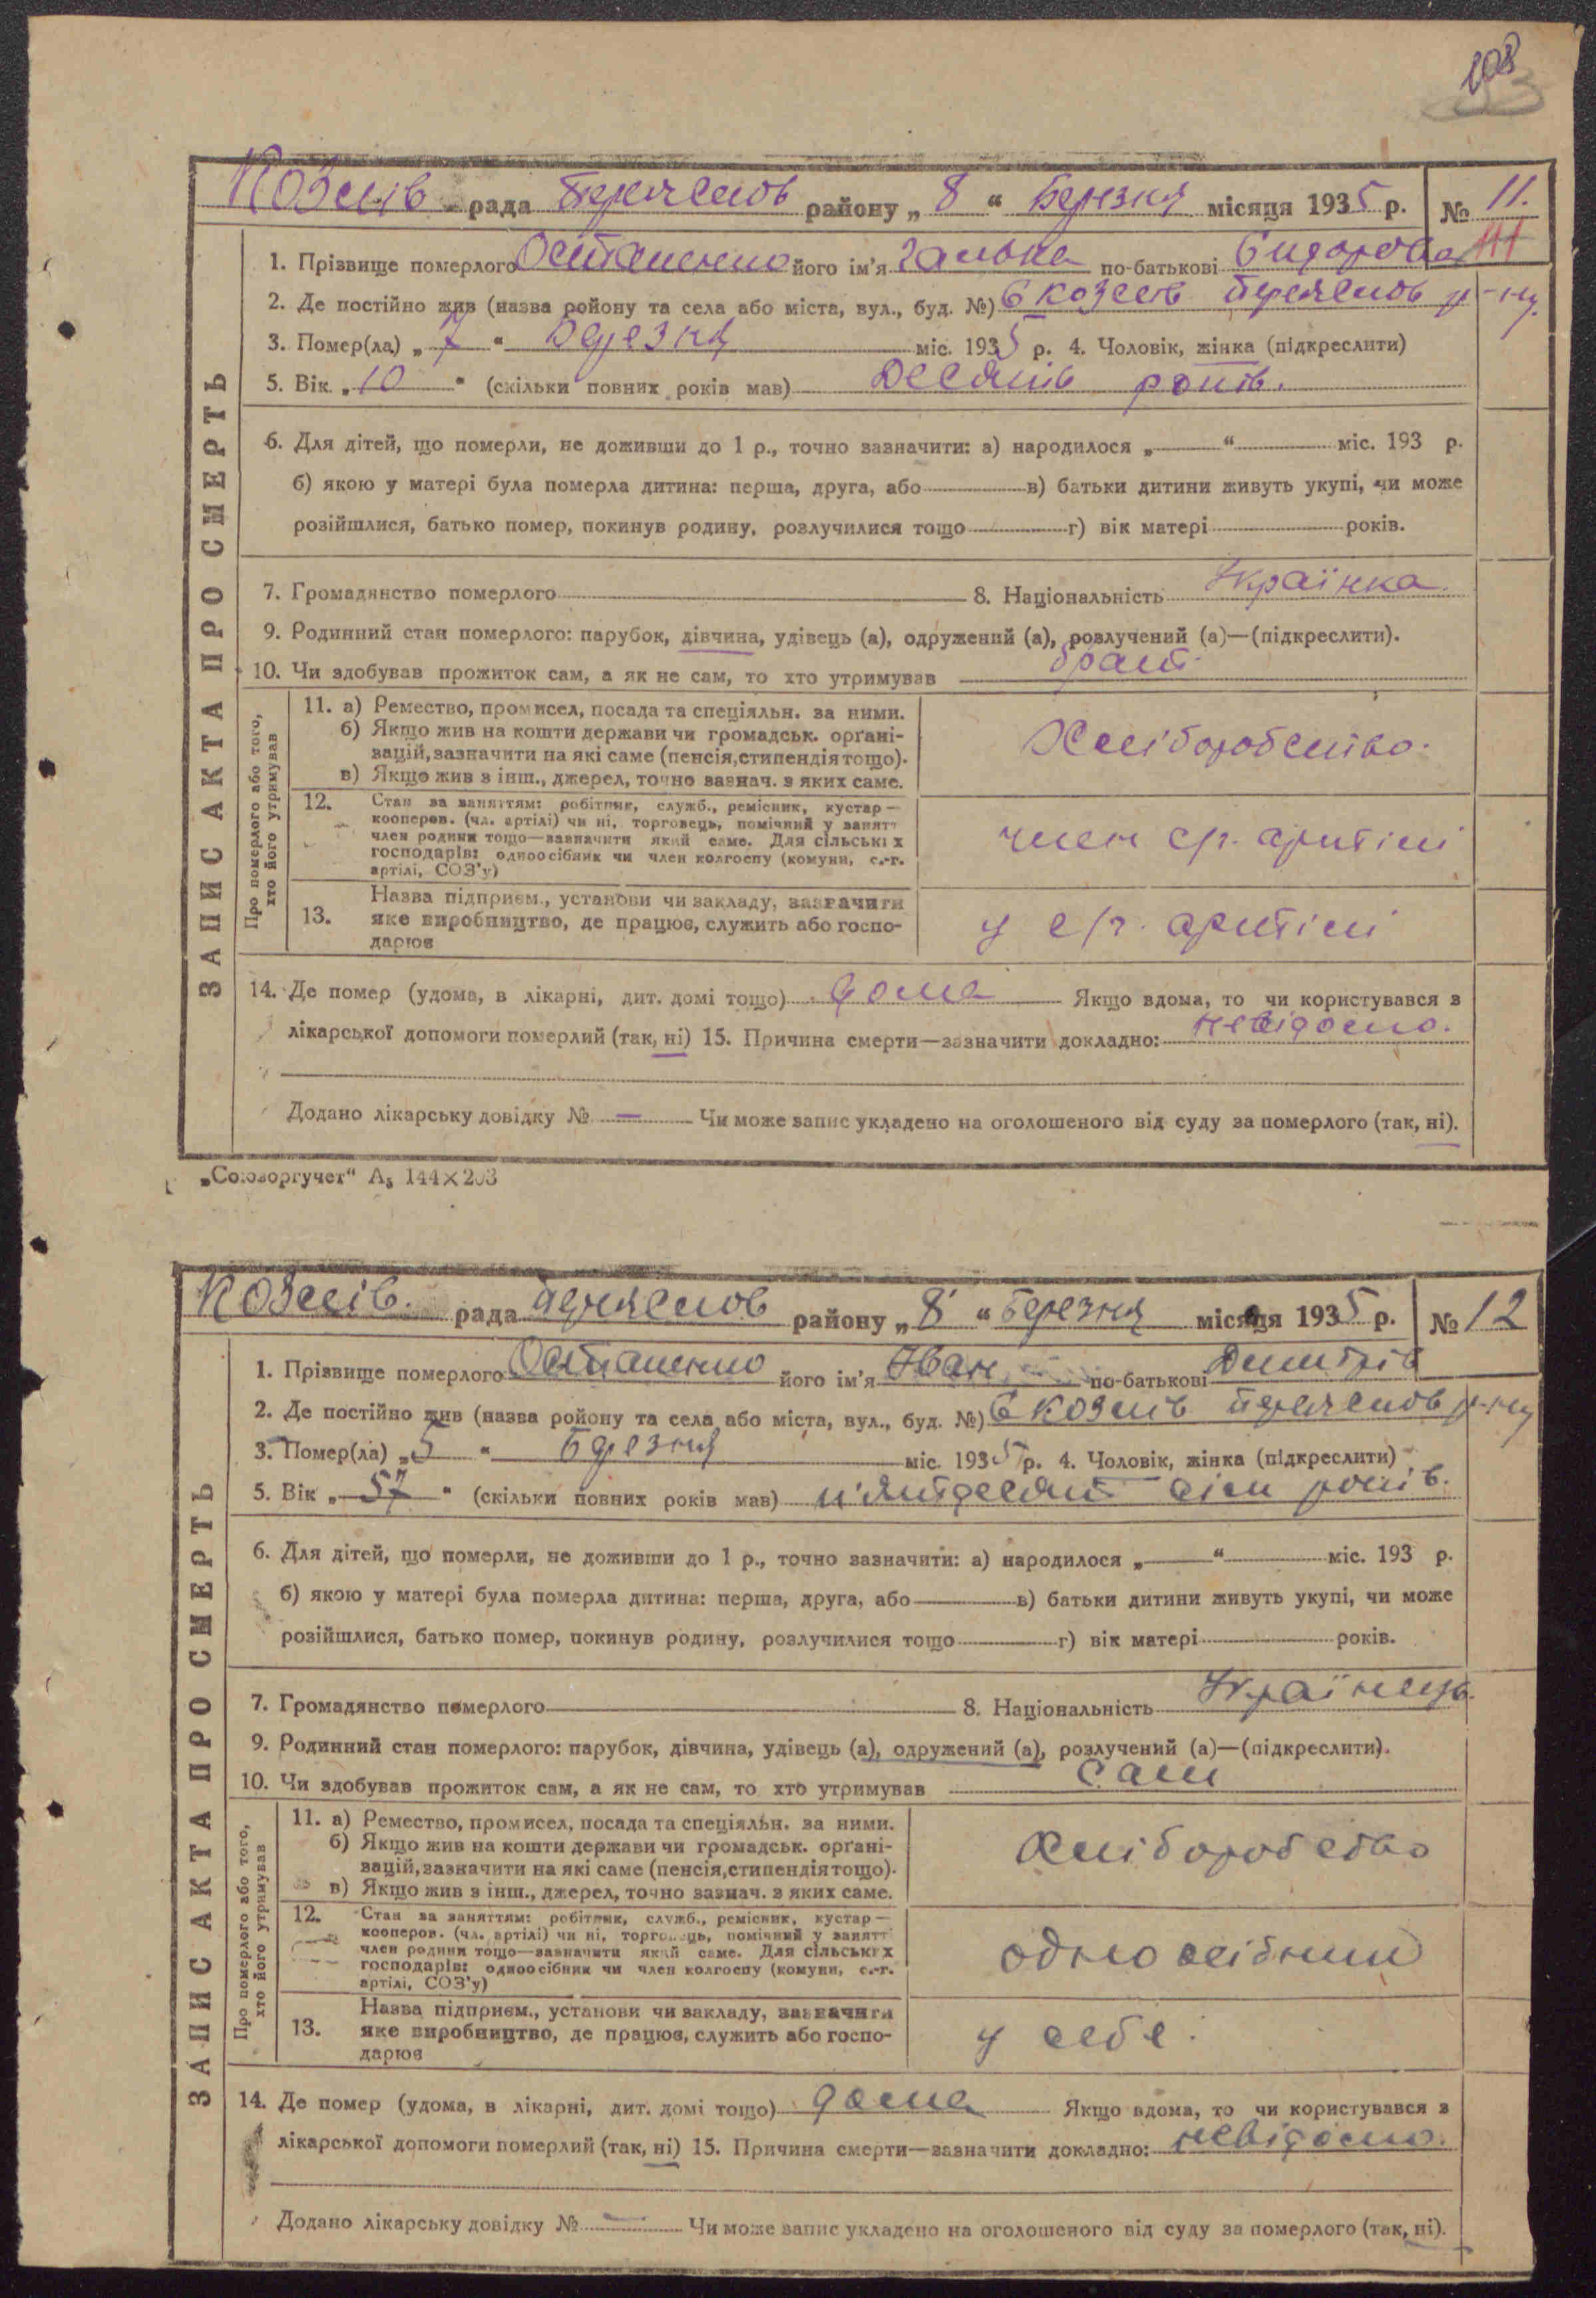 108
93
Козлів рада Переяслов району „ 8 “ Березня місяця 1935 р. № 11.
1. Прізвище померлого Осташенко його ім’я Галька по-батькові Сидорова
2. Де постійно жив (назва ройону та села або міста, вул., буд. №) С Козлів Переяслов р-ну.
3. Помер(ла) „ 7 “ Березня міс. 1935 р. 4. Чоловік, жінка (підкреслити)
5. Вік „ 10 “ (скільки повних років мав) Десять років.
6. Для дітей, що померли, не доживши до 1 р., точно зазначити: а) народилося „ — “ міс. 193 р.
б) якою у матері була померла дитина: перша, друга, або в) батьки дитини живуть укупі, чи може
розійшлися, батько помер, покинув родину, розлучилися тощо г) вік матері років.
7. Громадянство померлого 8. Національність Українка
9. Родинний стан померлого: парубок, дівчина, удівець (а), одружений (а), розлучений (а)—(підкреслити).
10. Чи здобував прожиток сам, а як не сам, то хто утримував брат
ЗАПИС АКТА ПРО СМЕРТЬ
Про померлого або того, хто його утримував
11. а) Ремество, промисел, посада та спеціяльн. за ними.
б) Якщо жив на кошти держави чи громадськ. орґані-
зацій, зазначити на які саме (пенсія, стипендія тощо).
в) Якщо жив з інш., джерел, точно зазнач. з яких саме.
Хліборобство.
12. Стан за заняттям: робітник, служб., ремісник, кустар—
кооперов. (чл. артілі) чи ні, торговець, помічний у занятт
член родини тощо—зазначити який саме. Для сільських
господарів: одноосібник чи член колгоспу (комуни, с.-г.
артілі, СОЗ’у)
член с/г. артілі
13. Назва підприєм., установи чи закладу, зазначити
яке виробництво, де працює, служить або госпо-
дарює
у с/г. артілі
14. Де помер (удома, в лікарні, дит. домі тощо) дома Якщо вдома, то чи користувався з
лікарської допомоги померлий (так, ні) 15. Причина смерти—зазначити докладно: невідомо.
Додано лікарську довідку № — Чи може запис укладено на оголошеного від суду за померлого (так, ні).
„Союзоргучет“ А₅ 144×203
Козлів. рада Переяслов району „ 8 “ Березня місяця 1935 р. № 12
1. Прізвище померлого Осташенко його ім’я Іван по-батькові Дмитрів
2. Де постійно жив (назва ройону та села або міста, вул., буд. №) С Козлів Переяслов р-ну
3. Помер(ла) „ 5 “ Березня міс. 1935 р. 4. Чоловік, жінка (підкреслити)
5. Вік „ 57 “ (скільки повних років мав) п'ятдесят сім років.
6. Для дітей, що померли, не доживши до 1 р., точно зазначити: а) народилося „ — “ міс. 193 р.
б) якою у матері була померла дитина: перша, друга, або в) батьки дитини живуть укупі, чи може
розійшлися, батько помер, покинув родину, розлучилися тощо г) вік матері років.
7. Громадянство померлого 8. Національність Українець.
9. Родинний стан померлого: парубок, дівчина, удівець (а), одружений (а), розлучений (а)—(підкреслити).
10. Чи здобував прожиток сам, а як не сам, то хто утримував сам
ЗАПИС АКТА ПРО СМЕРТЬ
Про померлого або того, хто його утримував
11. а) Ремество, промисел, посада та спеціяльн. за ними.
б) Якщо жив на кошти держави чи громадськ. орґані-
зацій, зазначити на які саме (пенсія, стипендія тощо).
в) Якщо жив з інш., джерел, точно зазнач. з яких саме.
Хліборобство
12. Стан за заняттям: робітник, служб., ремісник, кустар—
кооперов. (чл. артілі) чи ні, торговець, помічний у занятт
член родини тощо—зазначити який саме. Для сільських
господарів: одноосібник чи член колгоспу (комуни, с.-г.
артілі, СОЗ’у)
одноосібник
13. Назва підприєм., установи чи закладу, зазначити
яке виробництво, де працює, служить або госпо-
дарює
у себе.
14. Де помер (удома, в лікарні, дит. домі тощо) дома Якщо вдома, то чи користувався з
лікарської допомоги померлий (так, ні) 15. Причина смерти—зазначити докладно: невідомо.
Додано лікарську довідку № — Чи може запис укладено на оголошеного від суду за померлого (так, ні).